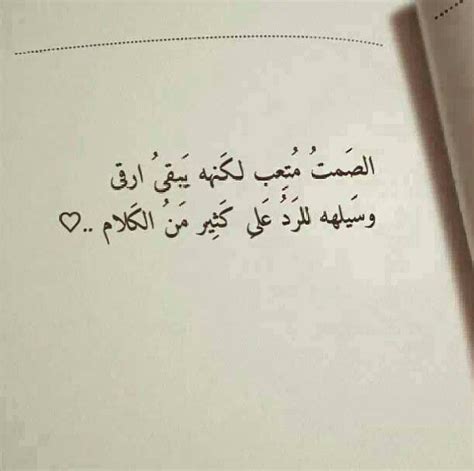 الصَمتُ مُتعِب لكَنهه يَبقىُ ارقى
وسَيلهه للرَدُ عَلىِ كَثيِر مَنُ الكَلام ..♡